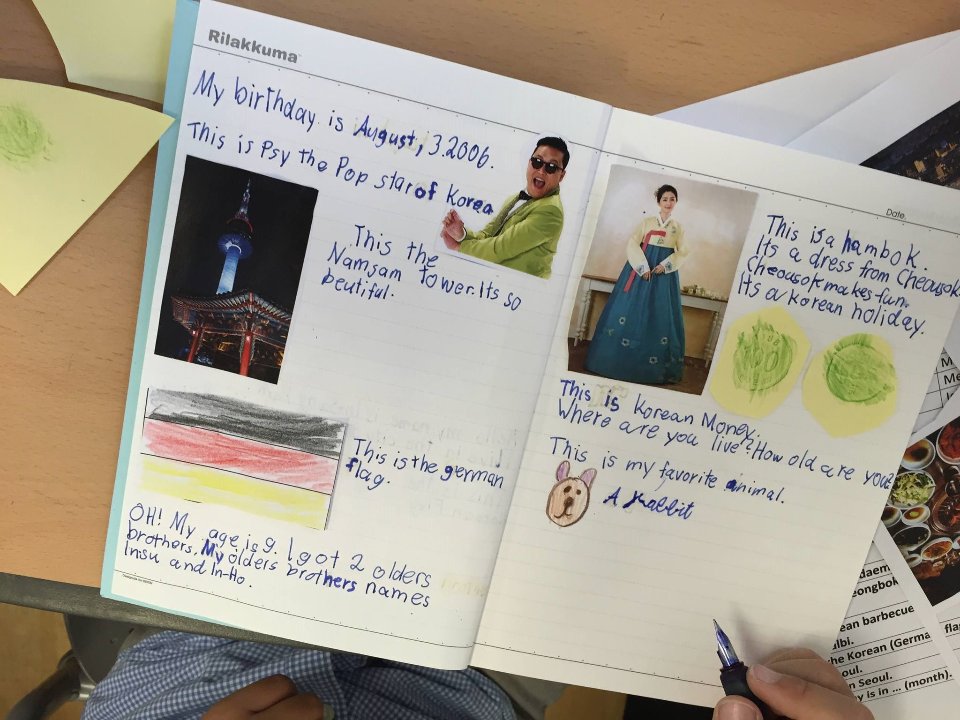 Rilakkuma
My birthday is August, 3.2006.
This is Psy the Pop star of Korea
This the
Namsam Tower. Its so
beutiful.
This is the german
flag.
OH! My age is 9. I got 2 olders
brothers. My olders brothers names
Insu and In-Ho.
Date.
This is a hambok.
Its a dress from Cheousok.
Cheousok makes fun.
Its a Korean holiday.
This is Korean Money.
Where are you live? How old are you?
This is my favorite animal.
A Rabbit
ean barbecue
lbi.
he Korean (Germa
fla
oul.
n Seoul.
y is in ... (month).